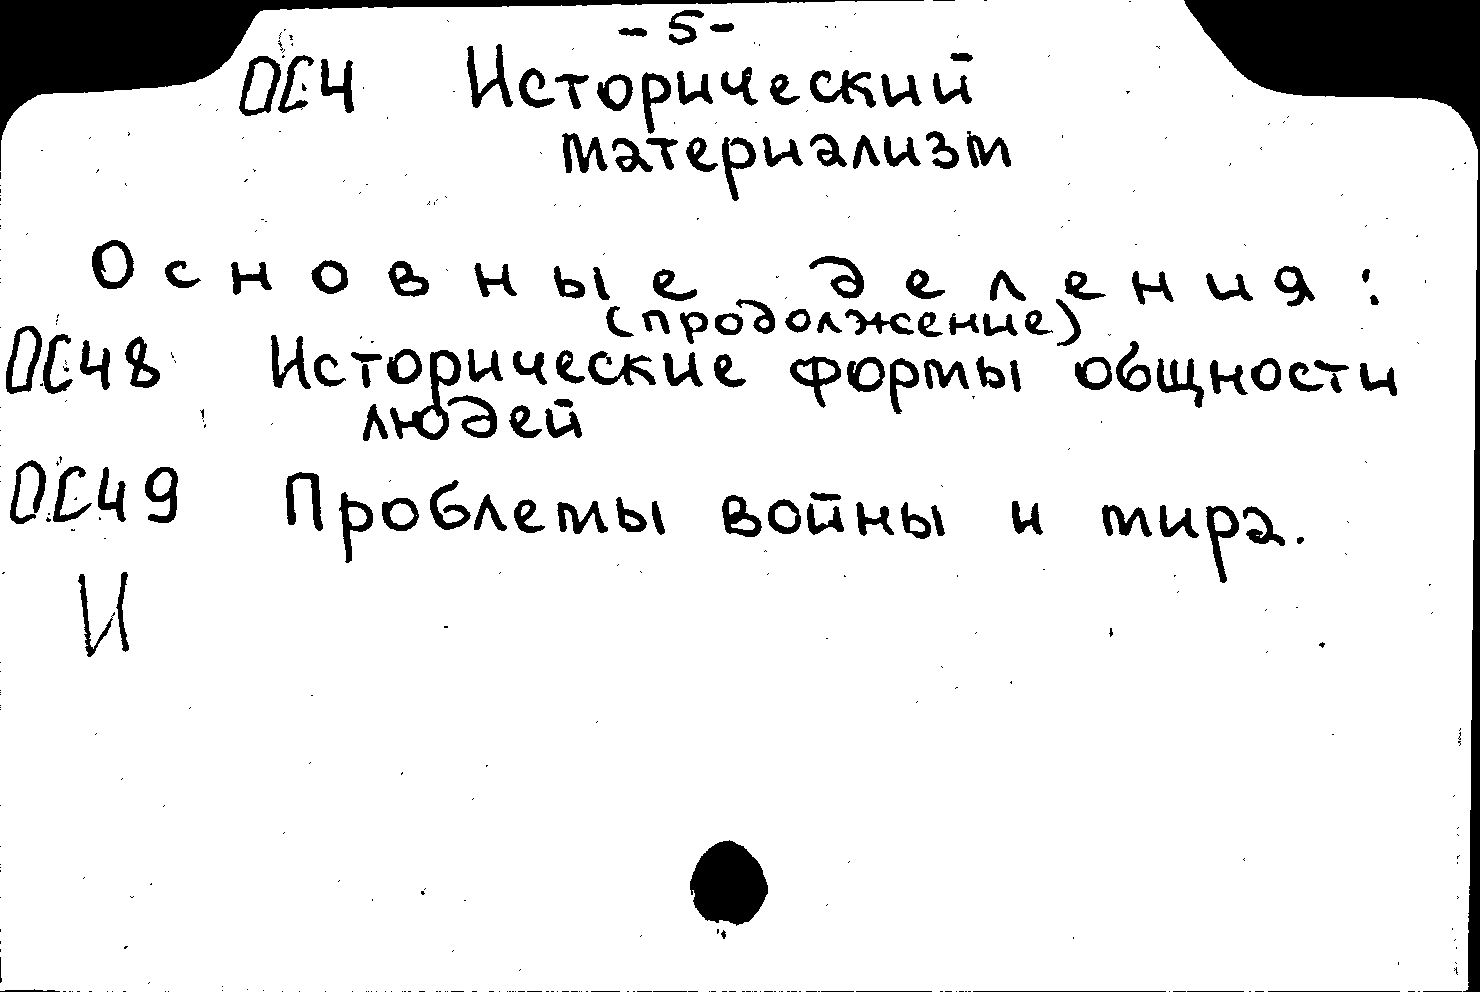 - 5 -
ОС4 Исторический
материализм
Основные деления:
(продолжение)
ОС48 Исторические формы общности
людей
ОС49 Проблемы войны и мира.
И